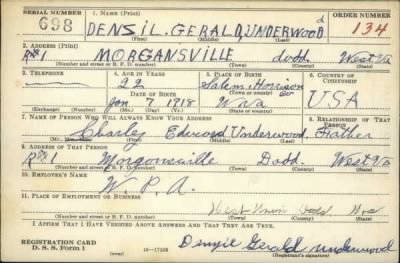 SERIAL NUMBER
698
1. NAME (Print)
DENSIL. GERALD UNDERWOOD
(First) (Middle) (Last)
ORDER NUMBER
134
2. ADDRESS (Print)
R#1 MORGANSVILLE Dodd. West Va
(Number and street or R. F. D. number) (Town) (County) (State)
3. TELEPHONE
(Exchange) (Number)
4. AGE IN YEARS
22
DATE OF BIRTH
Jan 7 1918
(Mo.) (Day) (Yr.)
5. PLACE OF BIRTH
Salem, Harrison
(Town or county)
Wva
(State or country)
6. COUNTRY OF CITIZENSHIP
USA
7. NAME OF PERSON WHO WILL ALWAYS KNOW YOUR ADDRESS
Charley Edward Underwood.
(First) (Middle) (Last)
8. RELATIONSHIP OF THAT PERSON
Father
9. ADDRESS OF THAT PERSON
R#1 Morgansville Dodd. West Va
(Number and street or R. F. D. number) (Town) (County) (State)
10. EMPLOYER'S NAME
W. P. A.
11. PLACE OF EMPLOYMENT OR BUSINESS
West Union Dodd Wva
(Number and street or R. F. D. number) (Town) (County) (State)
I AFFIRM THAT I HAVE VERIFIED ABOVE ANSWERS AND THAT THEY ARE TRUE.
REGISTRATION CARD
D. S. S. Form 1
16—17105
Denzie Gerald underwood
(Registrant's signature)